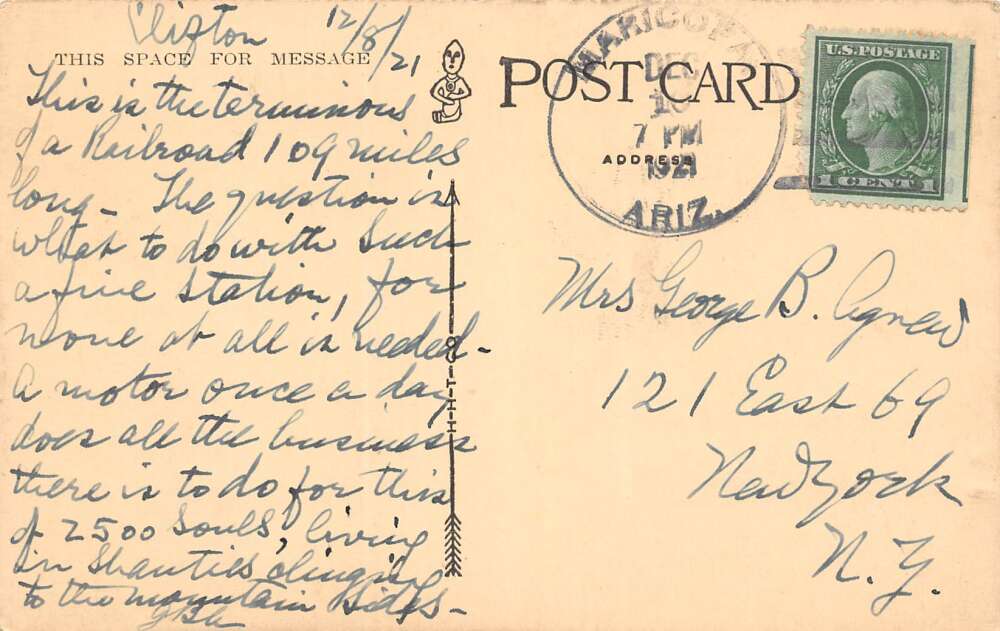 Clifton 12/8/21
THIS SPACE FOR MESSAGE
This is the terminous
of a Railroad 109 miles
long - The question is
what to do with such
a fine station, for
none at all is needed -
A motor once a day
does all the business
there is to do for this
of 2500 souls, living
in shanties clinging
to the mountain sides -
GBA
H-H-T-CO
POST CARD
ADDRESS
MARICOPA
DEC
10
7 PM
1921
ARIZ.
U.S. POSTAGE
1 CENT 1
Mrs George B. Agnew
121 East 69
New York
N.Y.